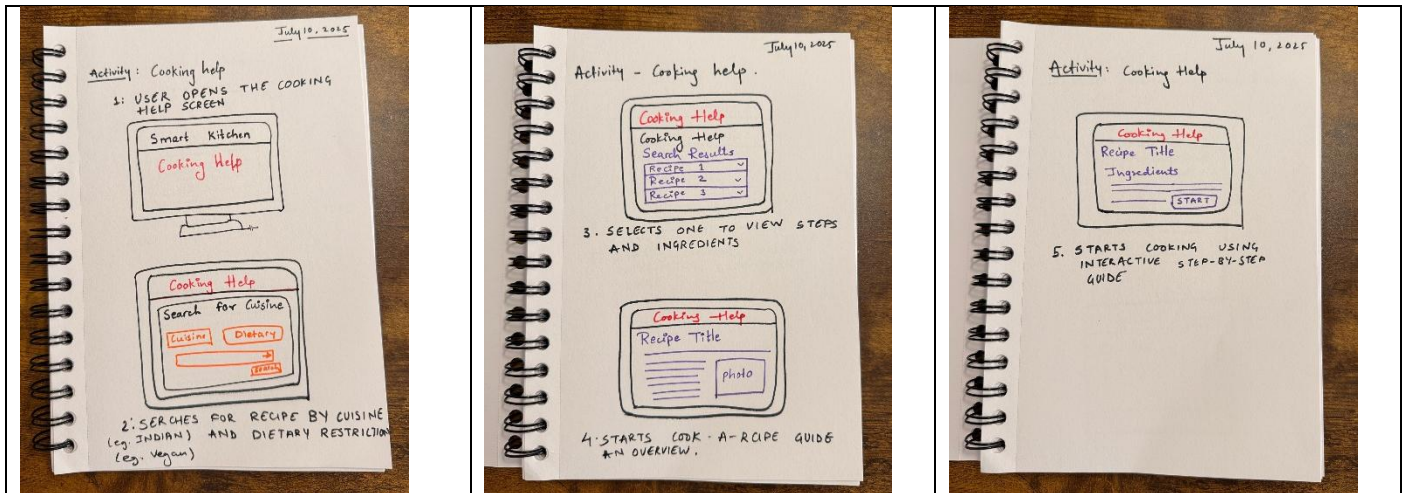 July 10, 2025
Activity: Cooking help
1: USER OPENS THE COOKING
HELP SCREEN
Smart Kitchen
Cooking Help
Cooking Help
Search for Cuisine
Cuisine
Dietary
Search
2: SERCHES FOR RECIPE BY CUISINE
(eg. INDIAN) AND DIETARY RESTRICTION
(eg. Vegan)
July 10, 2025
Activity - Cooking help.
Cooking Help
Cooking Help
Search Results
Recipe 1
Recipe 2
Recipe 3
3. SELECTS ONE TO VIEW STEPS
AND INGREDIENTS
Cooking Help
Recipe Title
photo
4. STARTS COOK-A-RCIPE GUIDE
AN OVERVIEW.
July 10, 2025
Activity: Cooking Help
Cooking Help
Recipe Title
Ingredients
START
5. STARTS COOKING USING
INTERACTIVE STEP-BY-STEP
GUIDE